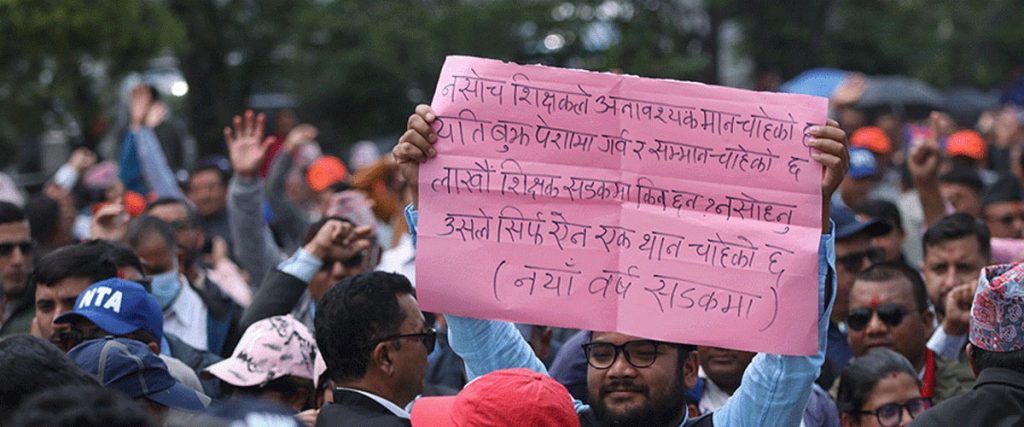 नसोच शिक्षकले अनावश्यक मान चाहेको छ
यति बुझ पेशामा गर्व र सम्मान चाहेको छ
लाखौं शिक्षक सडकमा किन छन ? नसोध्नु
उसले सिर्फ ऐन एक थान चाहेको छ
(नयाँ वर्ष सडकमा)
NTA